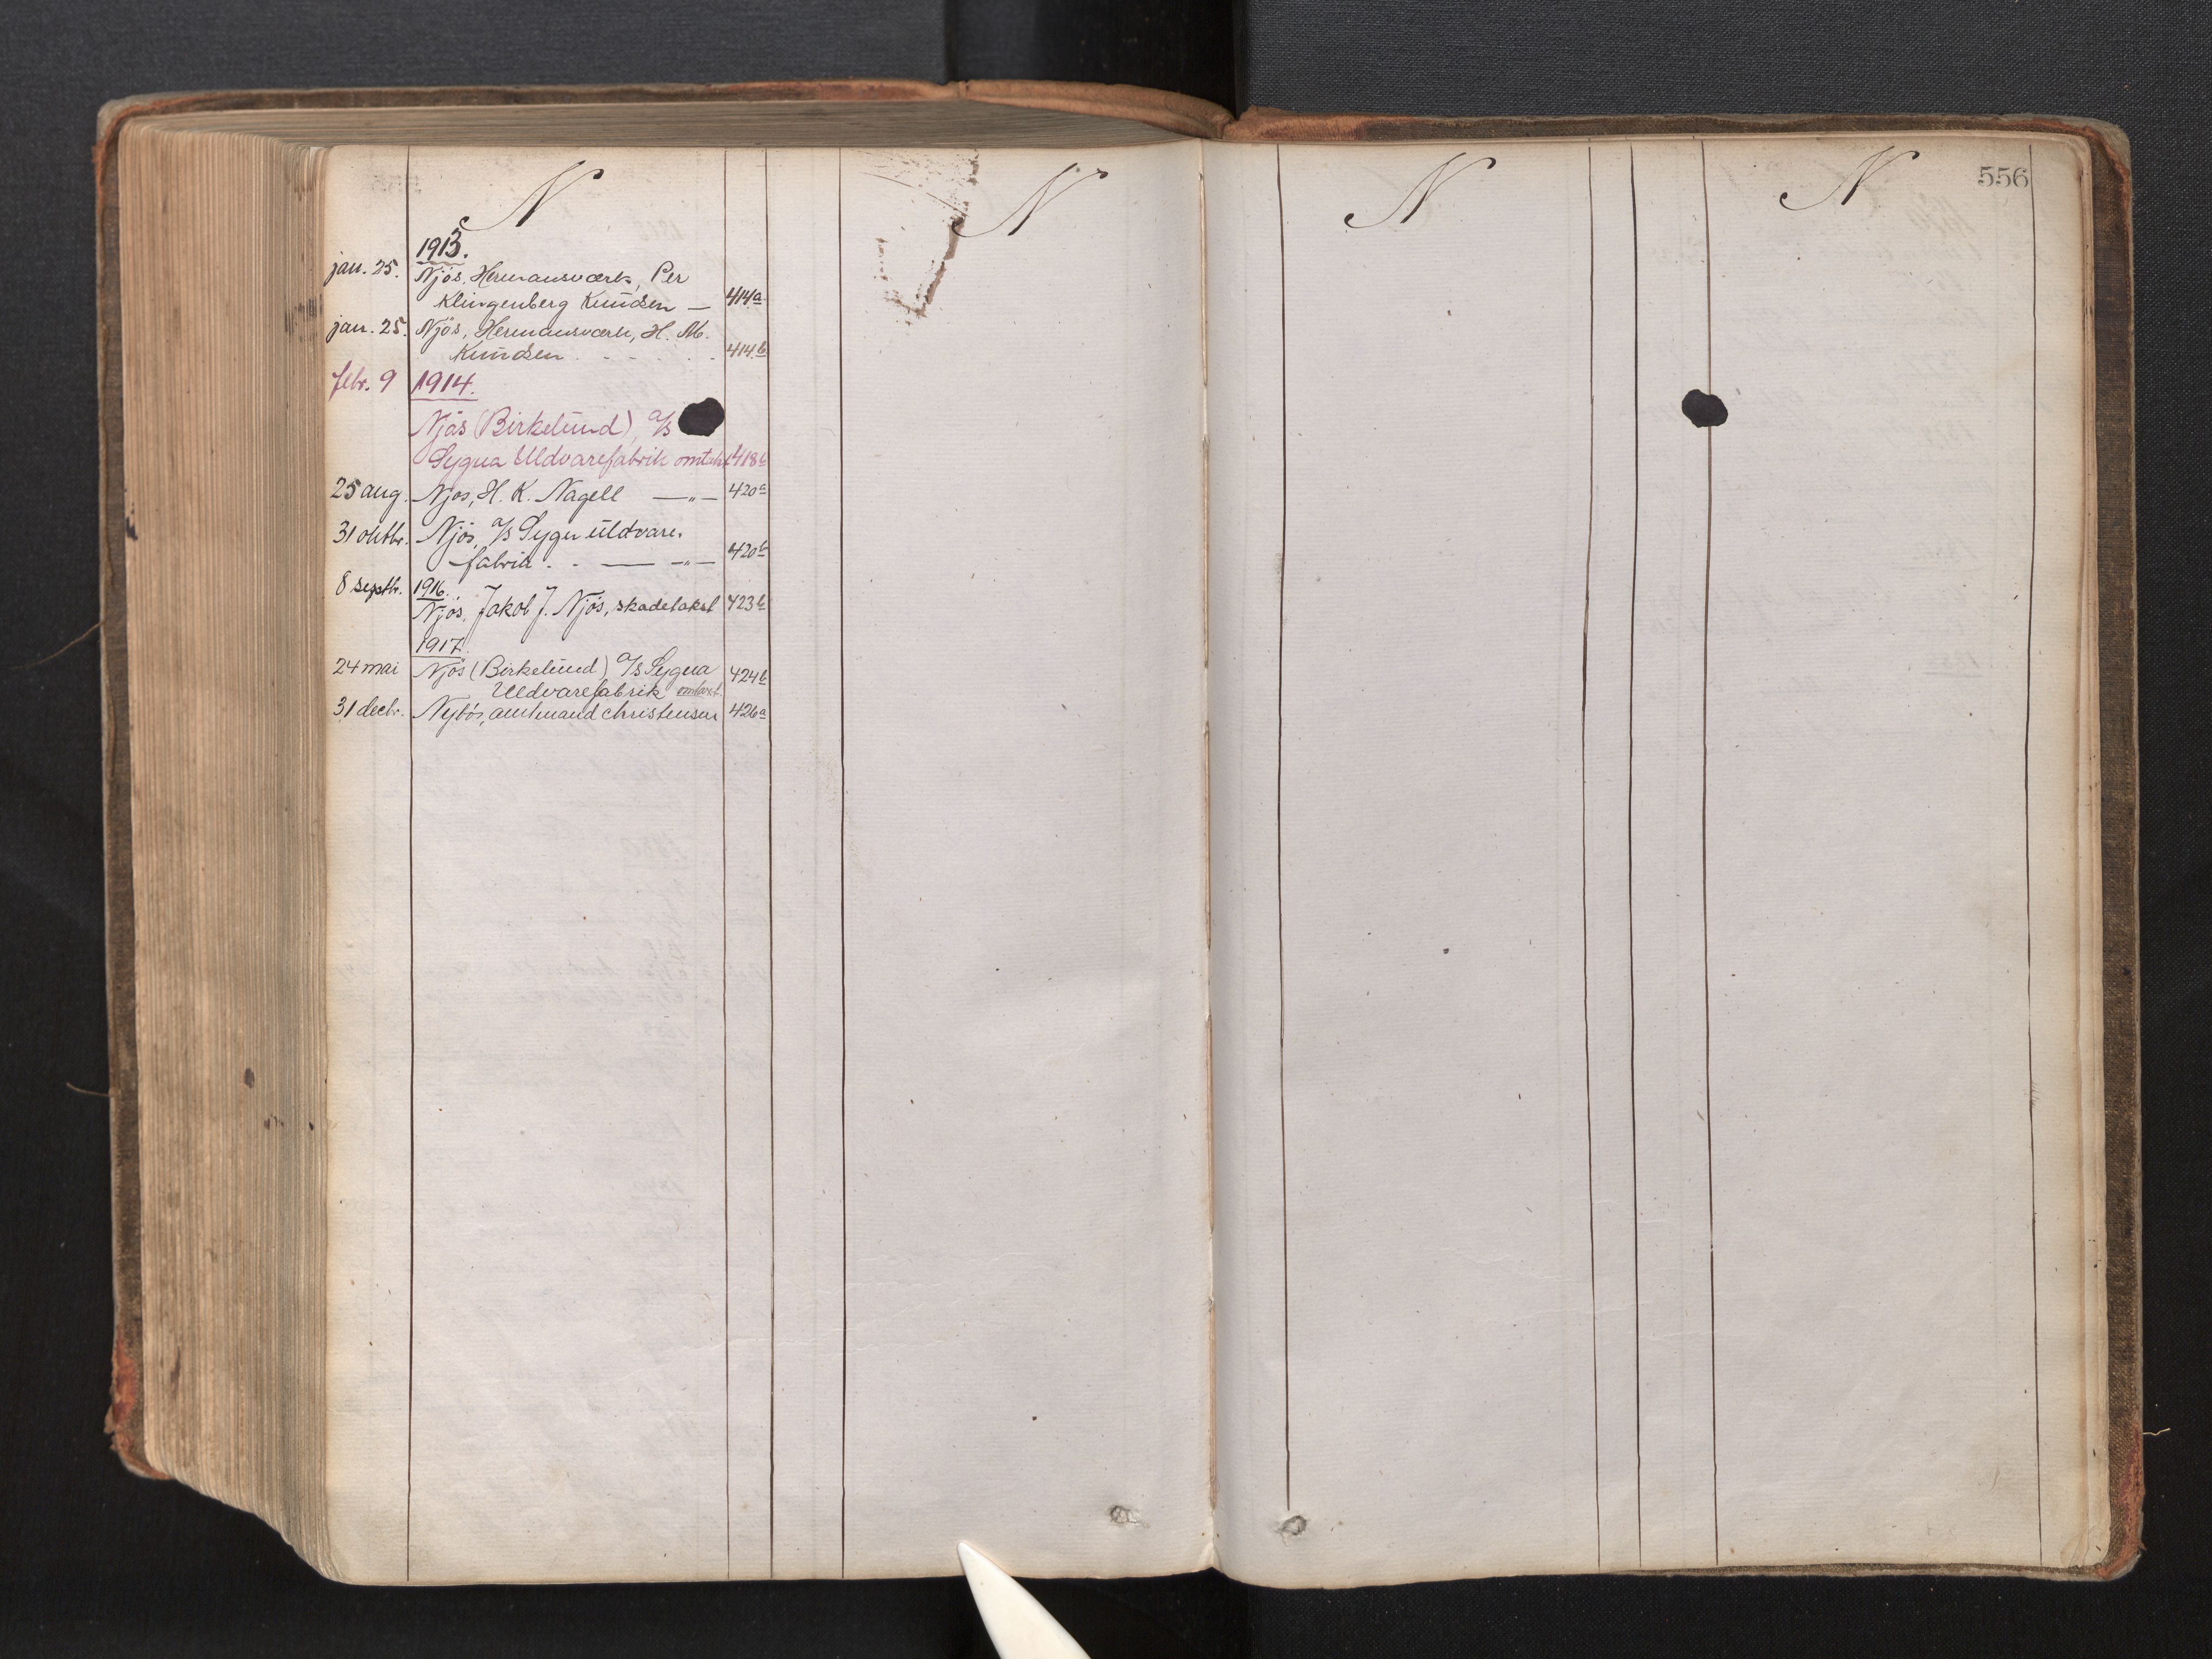 N
N
N
N
556
1913.
jan. 25. Njös, Hermansværk, Per
Klingenberg Knudsen — 414a
jan. 25. Njös, Hermansværk, H. M.
Knudsen . - - . . 414b
febr. 9 1914.
Njøs (Birkelund), A/S
Sygna Uldvarefabrik omtakst 418b
25 aug. Njøs, H. K. Nagell —„— 420a
31 oktbr. Njös, A/S Sygna uldvare-
fabrik . . — —„— 420b
8 septbr. 1916.
Njös, Jakob J. Njös, skadetakst 423b
1917.
24 mai Njös (Birkelund) A/S Sygna
Uldvarefabrik omtaxt. 424b
31 decbr. Nybö, amtmand Christensen 426a